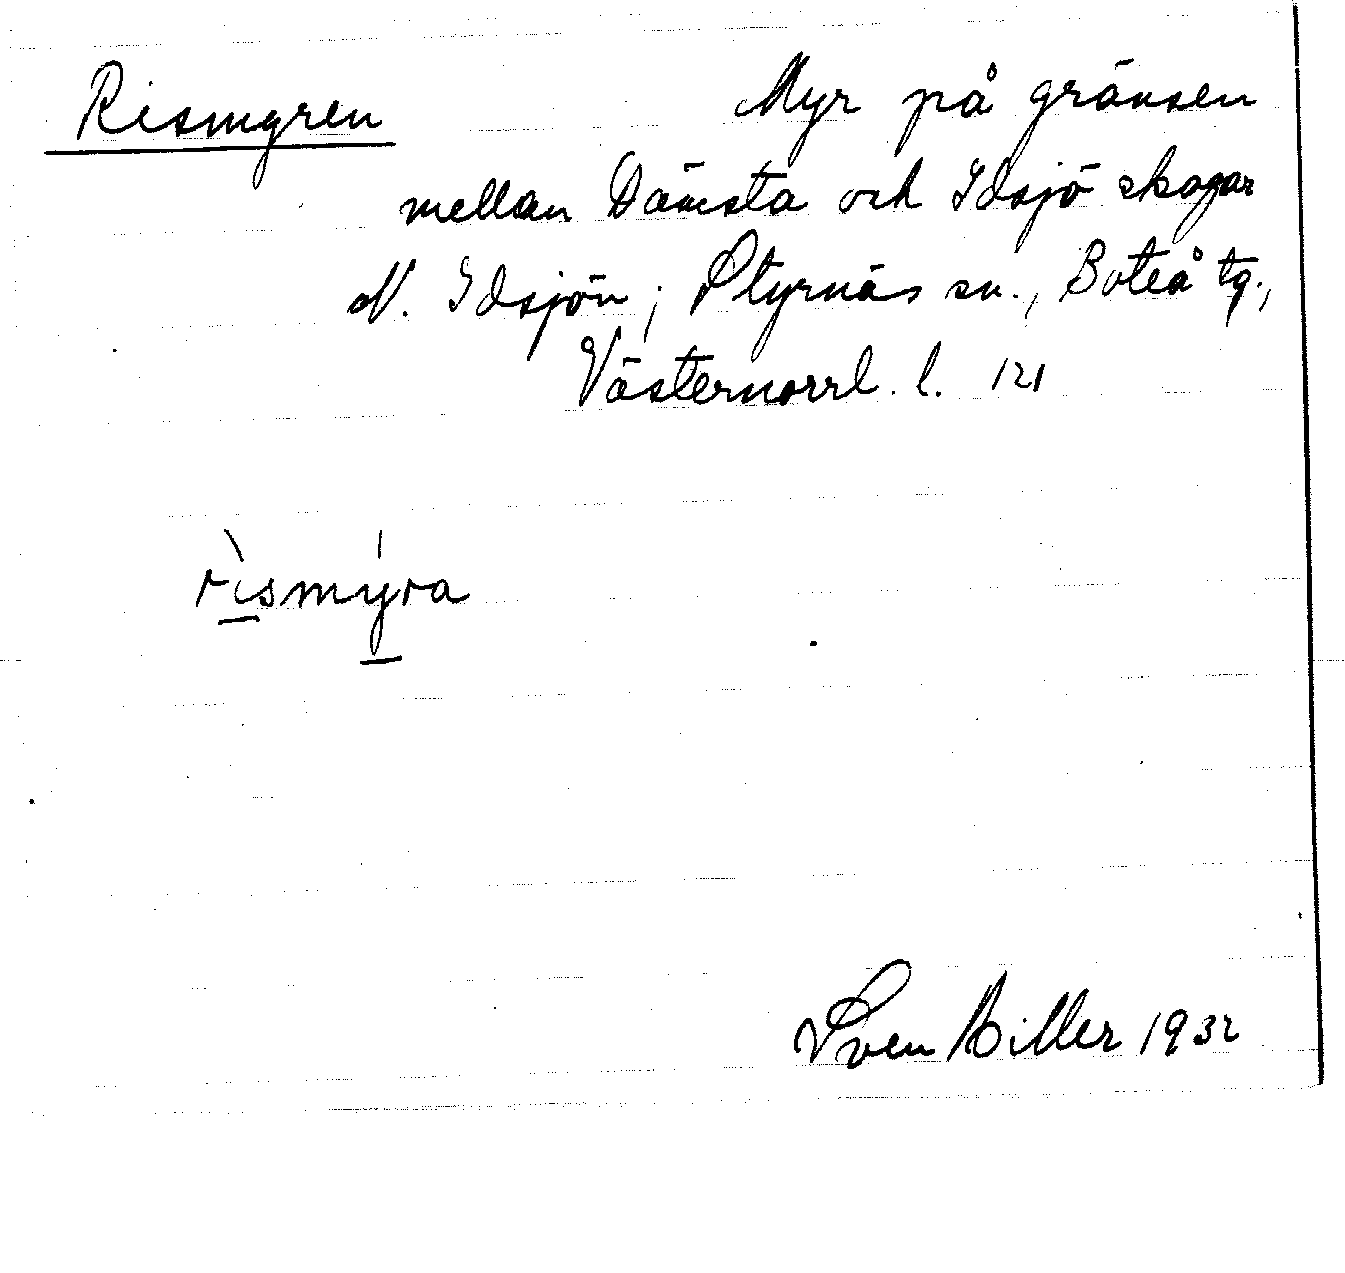 Rismyren Myr på gränsen
mellan Dämsta och Idsjö skogar
N. Idsjön; Styrnäs sn., Boteå tg.,
Västernorrl. l. 121
rìsmýra
Sven Hiller 1932